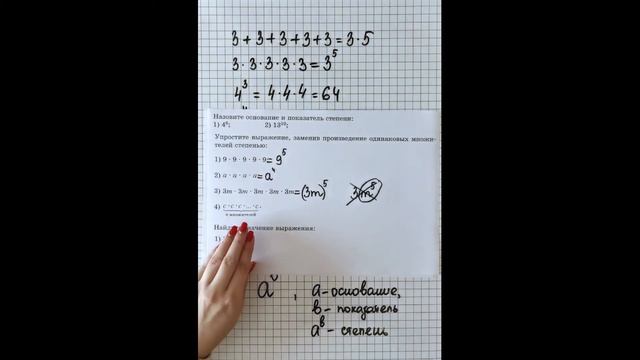 3 + 3 + 3 + 3 + 3 = 3 · 5
3 · 3 · 3 · 3 · 3 = 3⁵
4³ = 4 · 4 · 4 = 64
Назовите основание и показатель степени:
1) 4⁶; 2) 13¹⁰;
Упростите выражение, заменив произведение одинаковых множи-
телей степенью:
1) 9 · 9 · 9 · 9 · 9 = 9⁵
2) a · a · a · a = a⁴
3) 3m · 3m · 3m · 3m · 3m = (3m)⁵ 3m⁵
4) c · c · c · ... · c.
множителей
выражения:
1)
a , a – основание,
b – показатель
aᵇ – степень